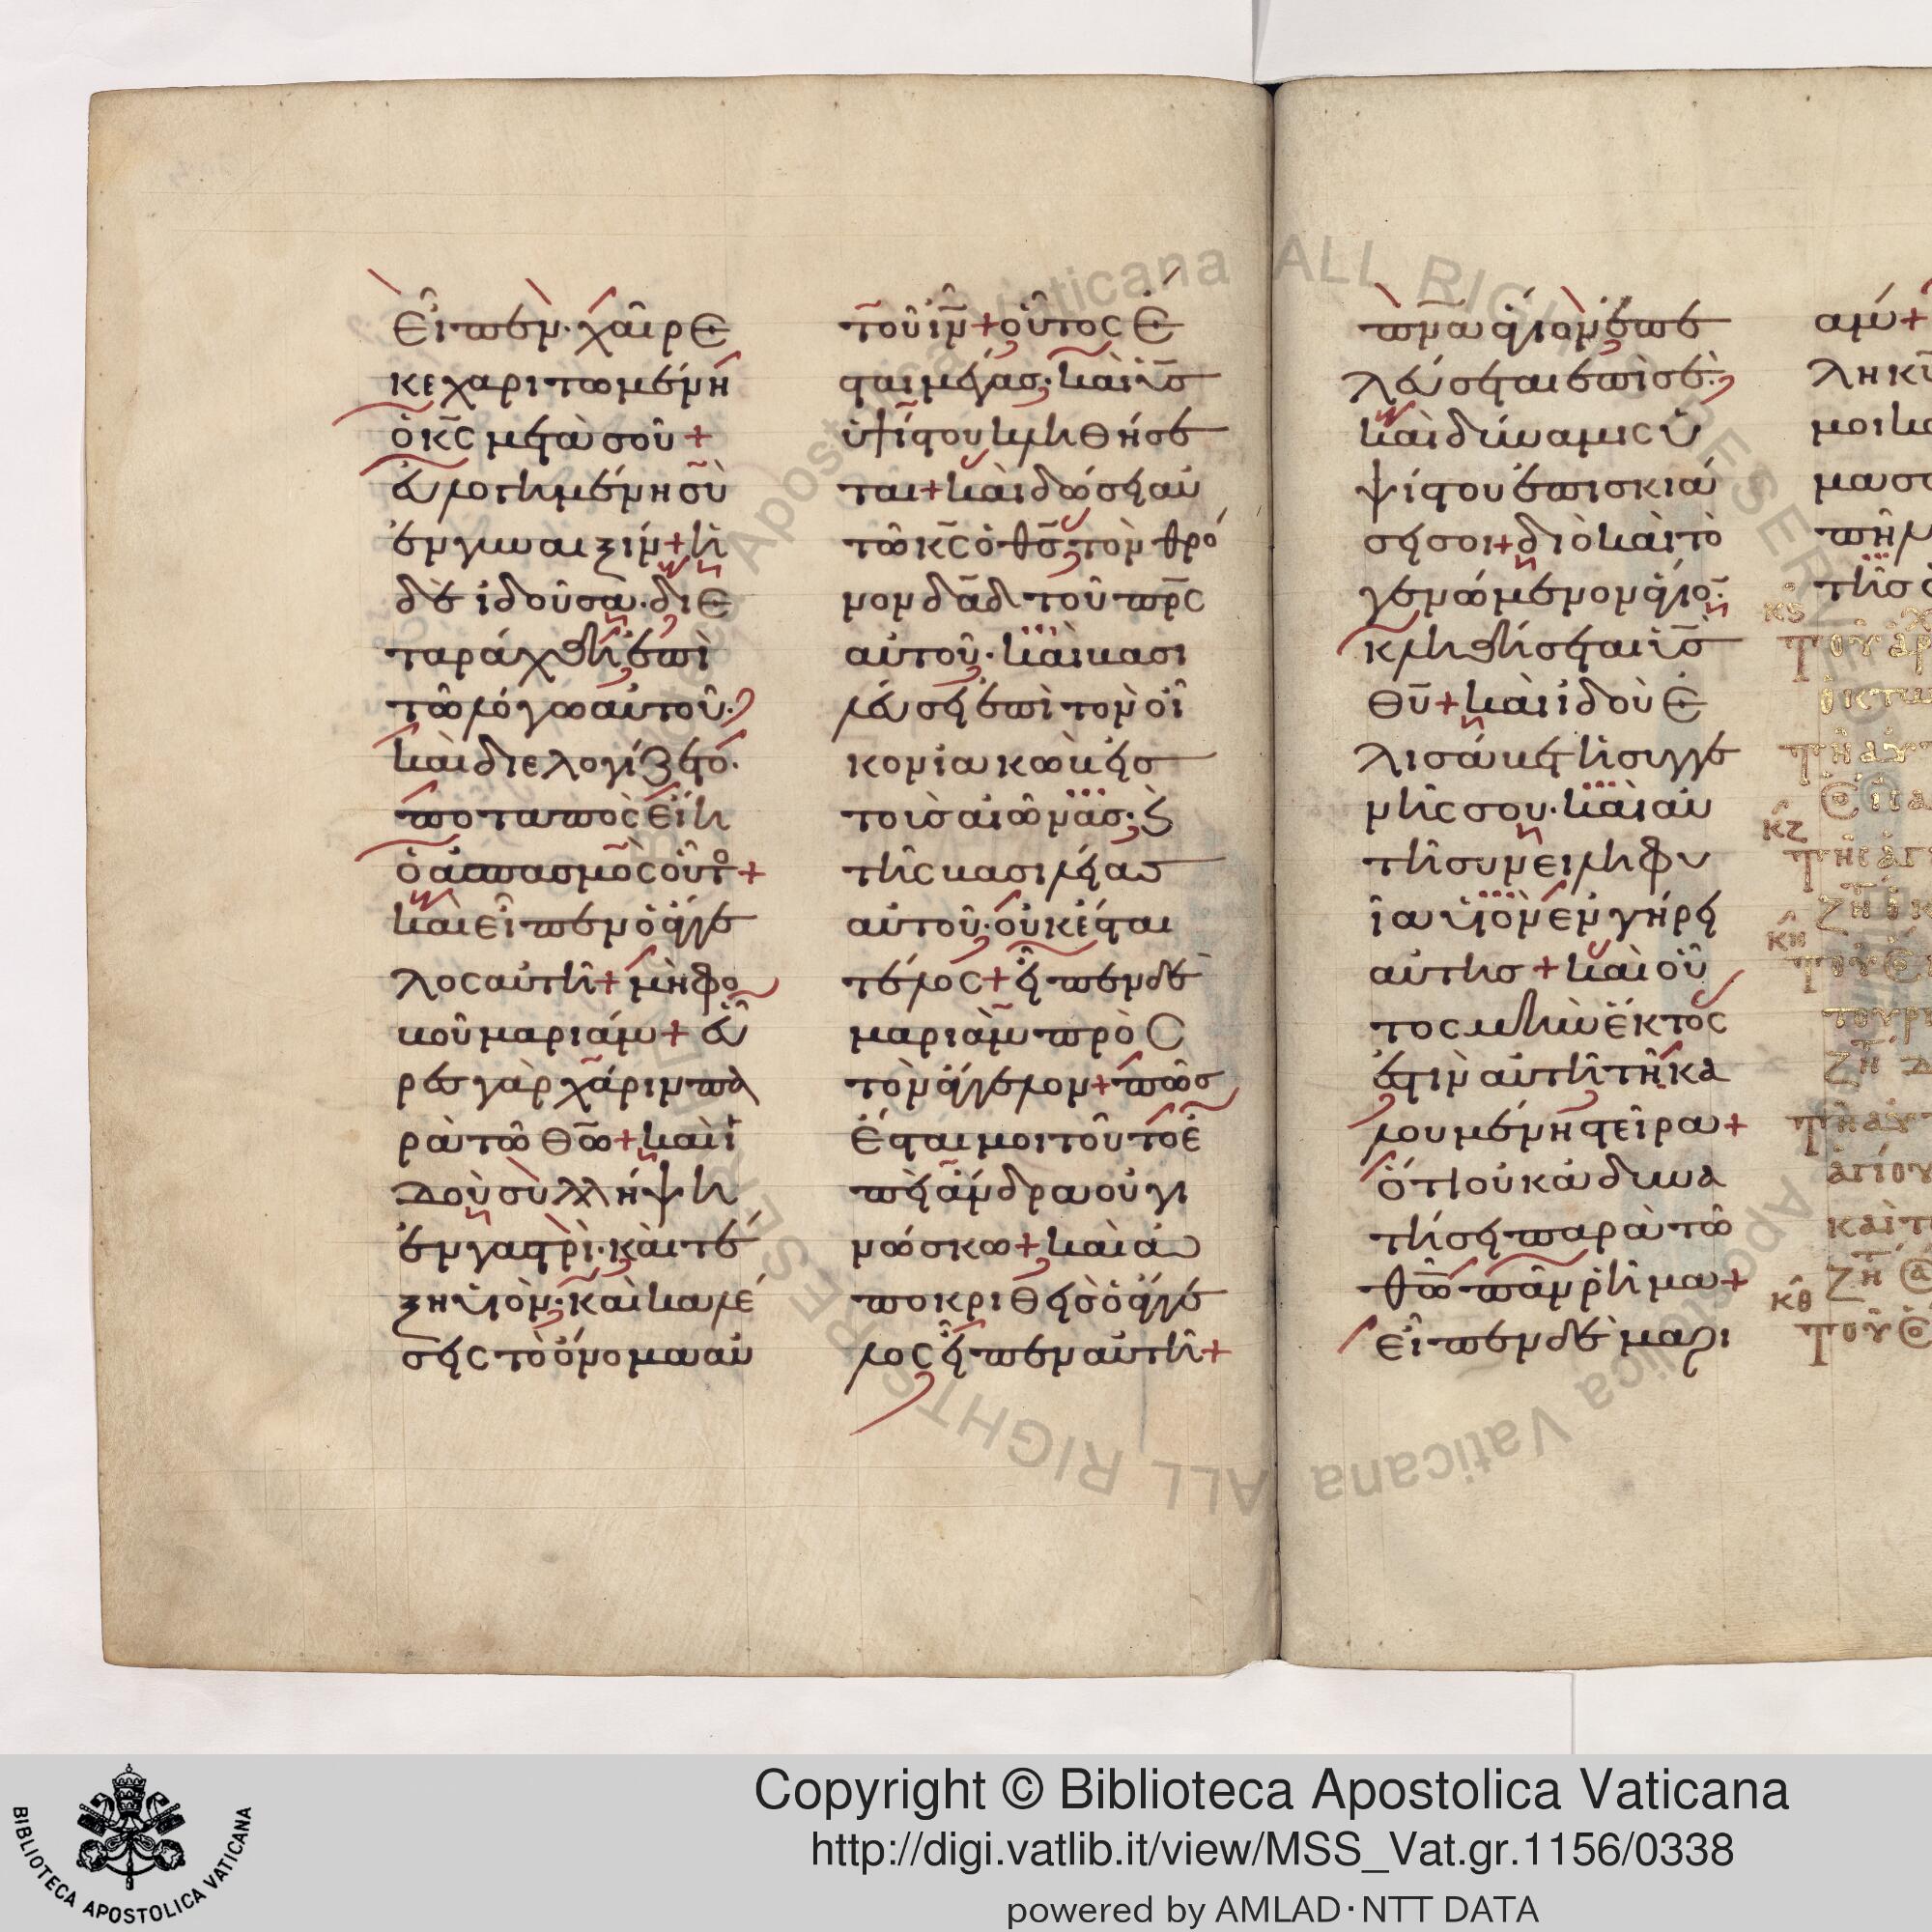 εἶπεν· χαῖρε
κεχαριτωμένη
ὁ κ̅ς̅ μετὰ σοῦ +
εὐλογημένη σὺ
ἐν γυναιξίν + ἡ
δὲ ἰδοῦσα· διε
ταράχθη ἐπὶ
τῶ λόγω αὐτοῦ·
καὶ διελογίζετο·
ποταπὸς εἴη
ὁ ἀσπασμὸς οὗτο +
καὶ εἶπεν ὁ ἄγγε
λος αὐτῆ + μὴ φο
βοῦ μαριάμ + εὗ
ρες γὰρ χάριν πα
ρὰ τῶ θ̅ω̅ + καὶ ἰ
δοὺ συλλήψη
ἐν γαστρὶ· καὶ τέ
ξη υἱὸν· καὶ καλέ
σεις τὸ ὄνομα αὐ
τοῦ ι̅ν̅ + οὗτος ἔ
σται μέγας· καὶ υ̅ς̅
ὑψίστου κληθήσε
ται + καὶ δώσει αὐ
τῶ κ̅ς̅ ὁ θ̅ς̅ τὸν θρό
νον δ̅α̅δ̅ τοῦ π̅ρ̅ς̅
αὐτοῦ· καὶ βασι
λεύσει ἐπὶ τὸν οἶ
κον ἰακὼβ εἰς
τοὺς αἰῶνας· καὶ
τῆς βασιλείας
αὐτοῦ· οὐκ ἔσται
τέλος + εἶπεν δὲ
μαριὰμ πρὸς
τὸν ἄγγελον + πῶς
ἔσται μοι τοῦτο ἐ
πεὶ ἄνδρα οὐ γι
νώσκω + καὶ ἀ
ποκριθεὶς ὁ ἄγγε
λος εἶπεν αὐτῆ +
π̅ν̅α̅ ἅγιον ἐπε
λεύσεται ἐπὶ σὲ·
καὶ δύναμις ὑ
ψίστου ἐπισκιά
σει σοι + διὸ καὶ τὸ
γενώμενον ἅγιον·
κληθήσεται υ̅ς̅
θ̅υ̅ + καὶ ἰδοὺ ἐ
λισάβετ ἡ συγγε
νής σου· καὶ αὐ
τὴ συνειληφυ
ῖα υἱὸν ἐν γήρει
αὐτῆς + καὶ οὗ
τος μὴν ἕκτος
ἐστὶν αὐτῆ τῆ κα
λουμένη στείρα +
ὅτι οὐκ ἀδυνα
τήσει παρὰ τῶ
θ̅ω̅ πᾶν ῥῆμα +
εἶπεν δὲ μαρι
ἀμ +
κϛ
κζ
κη
κθ
Copyright © Biblioteca Apostolica Vaticana
http://digi.vatlib.it/view/MSS_Vat.gr.1156/0338
powered by AMLAD·NTT DATA
BIBLIOTECA APOSTOLICA VATICANA